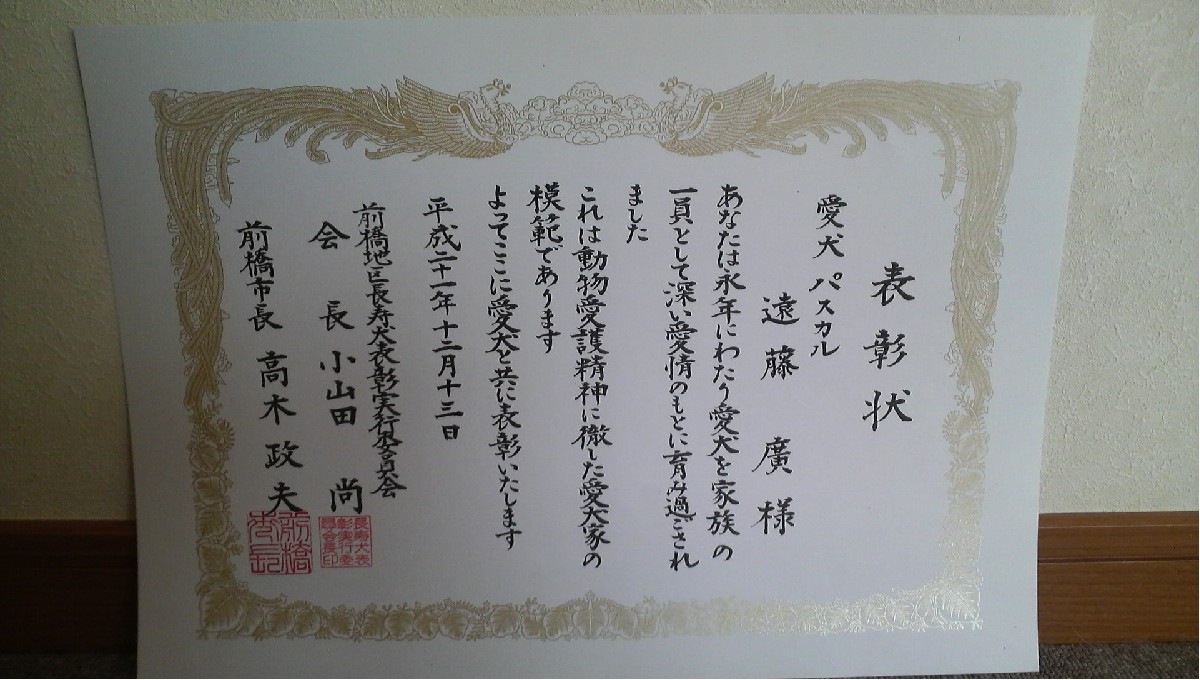 表彰状
愛犬 パスカル
遠藤 廣 様
あなたは永年にわたり愛犬を家族の
一員として深い愛情のもとに育み過ごされ
ました
これは動物愛護精神に徹した愛犬家の
模範であります
よってここに愛犬と共に表彰いたします
平成二十一年十二月十三日
前橋地区長寿犬表彰実行委員会
会長 小山田 尚
前橋市長 高木政夫
長寿犬表
彰実行委
員会長印
前橋
市長